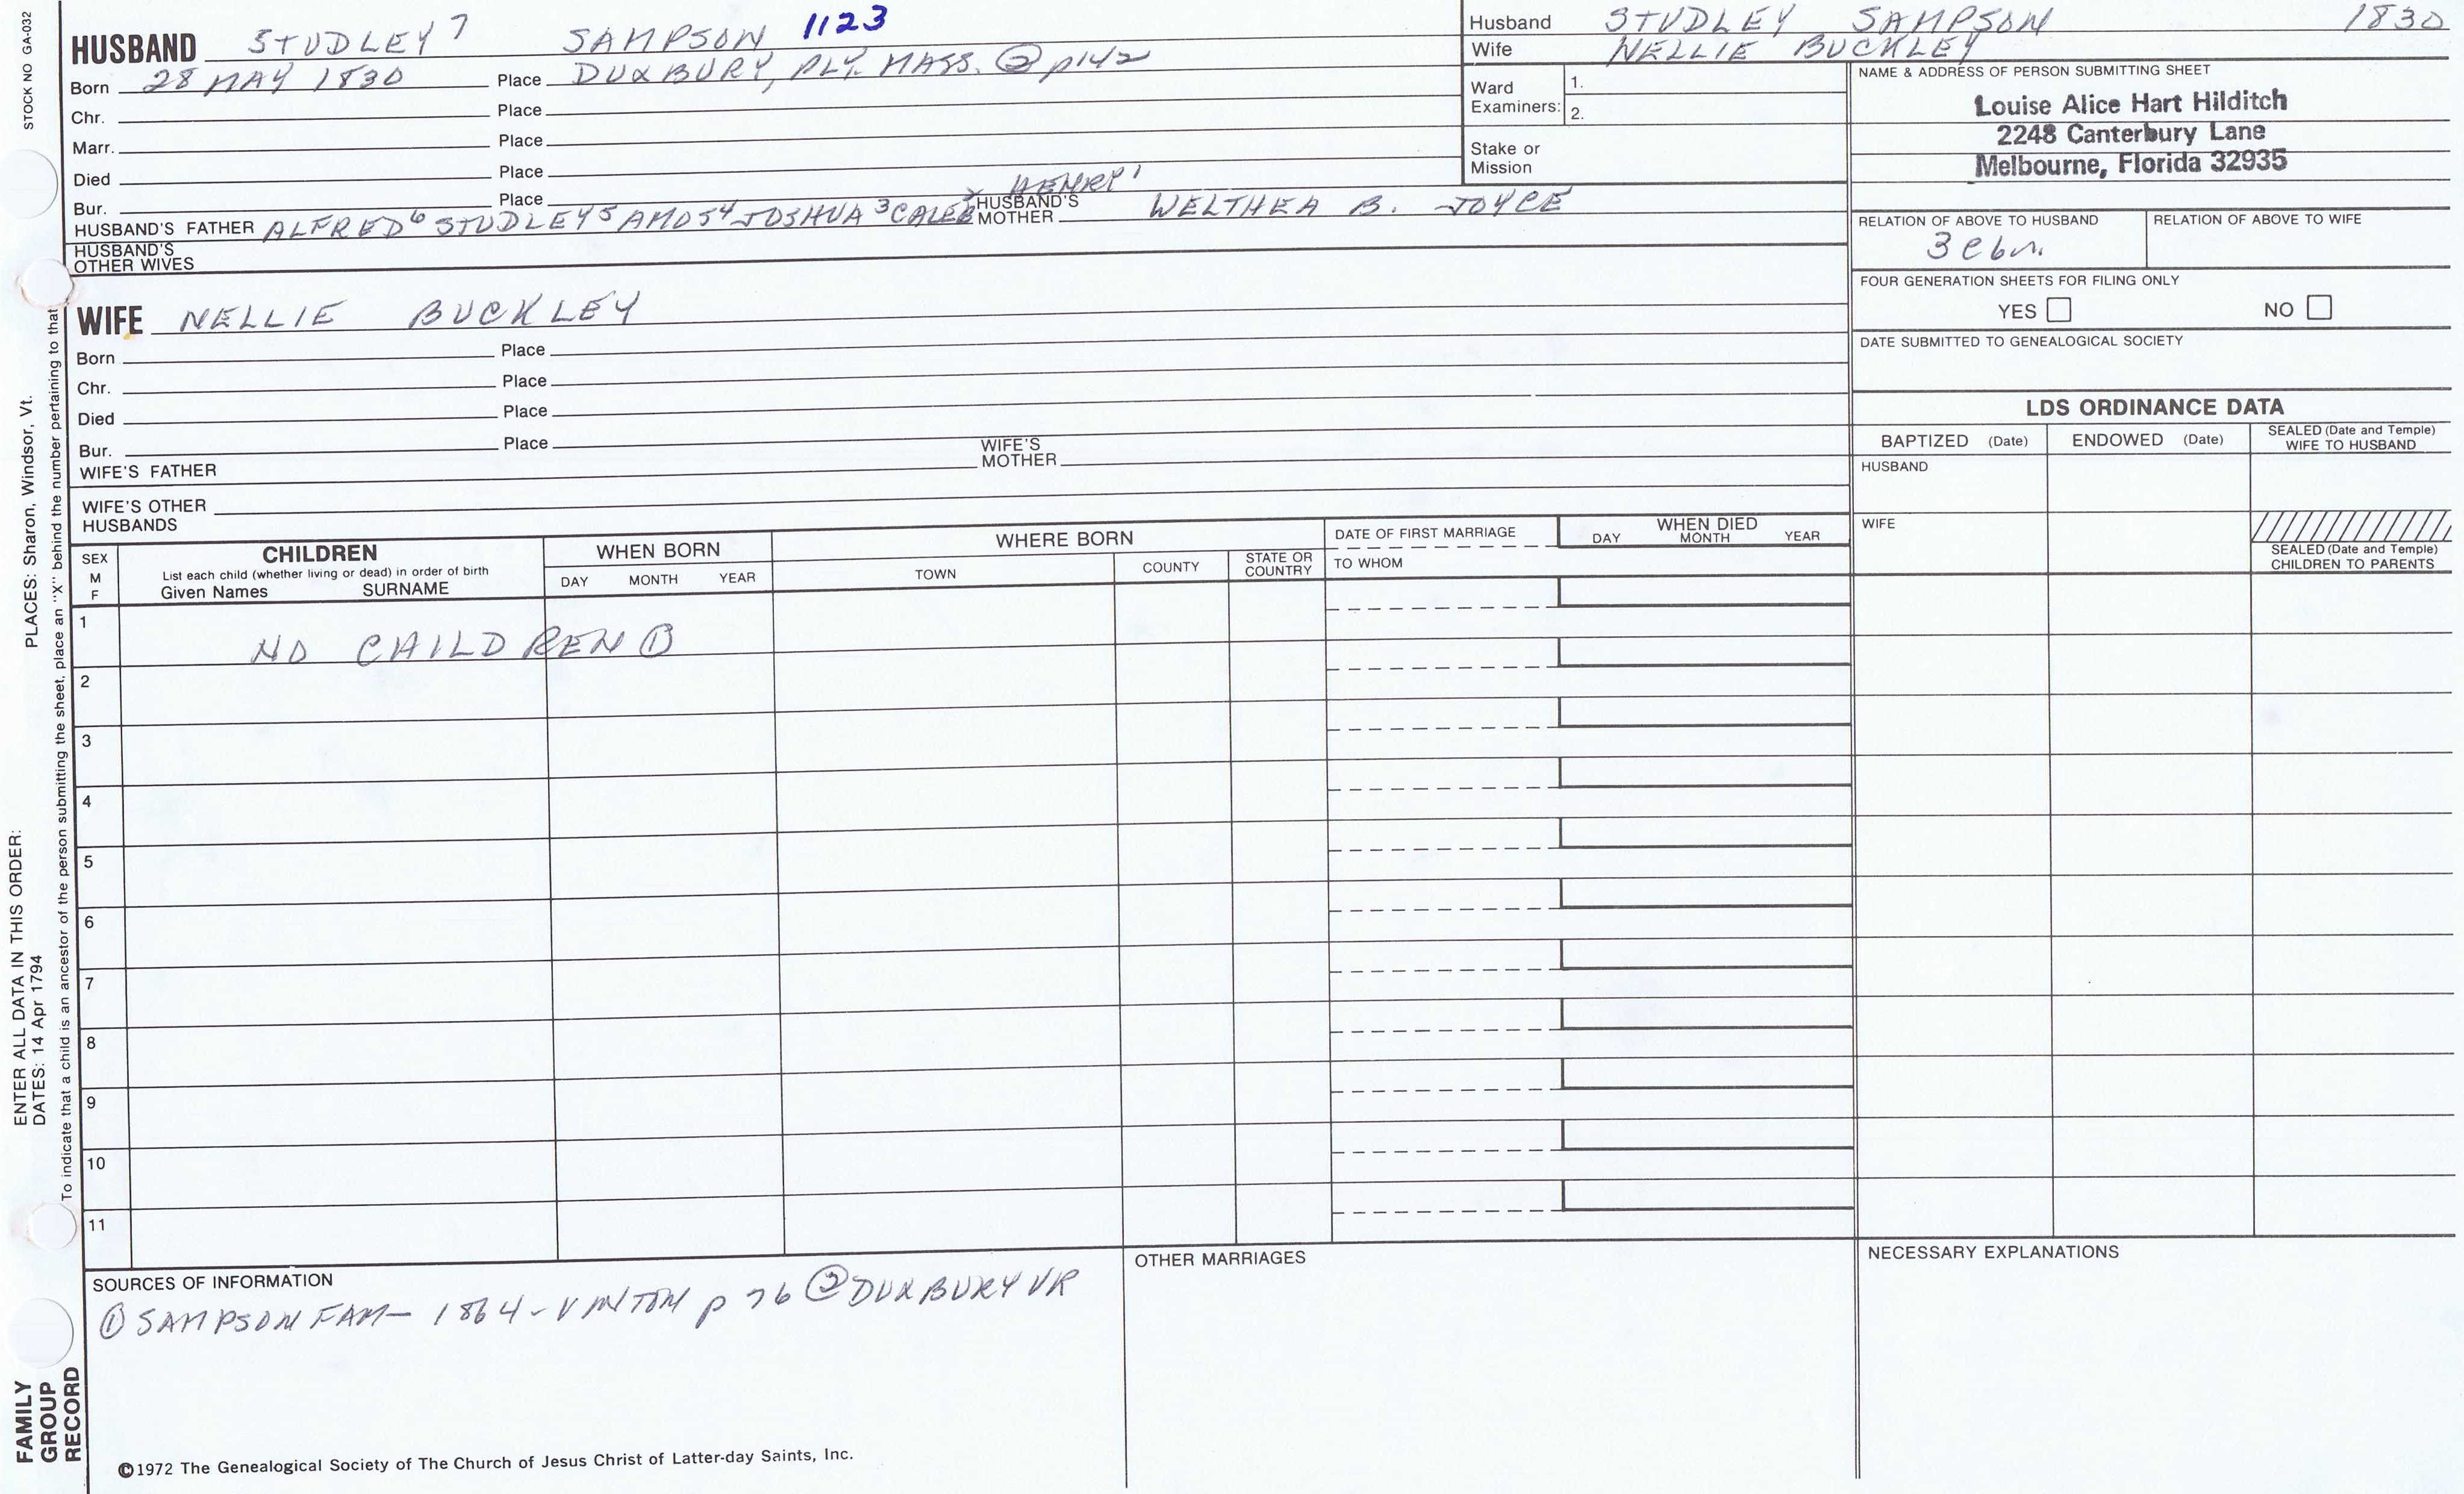 STOCK NO GA-032
HUSBAND STUDLEY 7 SAMPSON 1123
Born 28 MAY 1830 Place DUXBURY, PLY. MASS. ② p142
Chr. Place
Marr. Place
Died Place
Bur. Place
HENRY 1
HUSBAND'S FATHER ALFRED 6 STUDLEY 5 AMOS 4 JOSHUA 3 CALEB HUSBAND'S MOTHER WELTHEA B. JOYCE
HUSBAND'S
OTHER WIVES
WIFE NELLIE BUCKLEY
Born Place
Chr. Place
Died Place
Bur. Place
WIFE'S FATHER WIFE'S MOTHER
WIFE'S OTHER
HUSBANDS
Husband STUDLEY SAMPSON 1830
Wife NELLIE BUCKLEY
Ward
Examiners:
1.
2.
Stake or
Mission
NAME & ADDRESS OF PERSON SUBMITTING SHEET
Louise Alice Hart Hilditch
2248 Canterbury Lane
Melbourne, Florida 32935
RELATION OF ABOVE TO HUSBAND RELATION OF ABOVE TO WIFE
FOUR GENERATION SHEETS FOR FILING ONLY
YES NO
DATE SUBMITTED TO GENEALOGICAL SOCIETY
LDS ORDINANCE DATA
BAPTIZED (Date) ENDOWED (Date) SEALED (Date and Temple)
WIFE TO HUSBAND
HUSBAND
WIFE
SEALED (Date and Temple)
CHILDREN TO PARENTS
SEX
M
F
CHILDREN
List each child (whether living or dead) in order of birth
Given Names SURNAME
WHEN BORN
DAY MONTH YEAR
WHERE BORN
TOWN COUNTY STATE OR COUNTRY
DATE OF FIRST MARRIAGE
TO WHOM
WHEN DIED
DAY MONTH YEAR
1 NO CHILDREN ①
2
3
4
5
6
7
8
9
10
11
SOURCES OF INFORMATION
① SAMPSON FAM— 1864 - VINTON p 76 ② DUXBURY VR
OTHER MARRIAGES
NECESSARY EXPLANATIONS
©1972 The Genealogical Society of The Church of Jesus Christ of Latter-day Saints, Inc.
FAMILY
GROUP
RECORD
ENTER ALL DATA IN THIS ORDER:
DATES: 14 Apr 1794 PLACES: Sharon, Windsor, Vt.
To indicate that a child is an ancestor of the person submitting the sheet, place an "X" behind the number pertaining to that